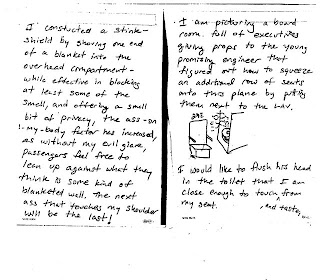 I constructed a stink-
shield by shoving one end
of a blanket into the
overhead compartment -
while effective in blocking
at least some of the
smell, and offering a small
bit of privacy, the ass-on
-my-body factor has increased,
as without my evil glare,
passengers feel free to
lean up against what they
think is some kind of
blanketed wall. The next
ass that touches my shoulder
will be the last!
I am picturing a board
room full of executives
giving props to the young
promising engineer that
figured out how to squeeze
an additional row of seats
onto this plane by putting
them next to the LAV.
I would like to flush his head
in the toilet that I am
close enough to touch from
my seat.
and taste